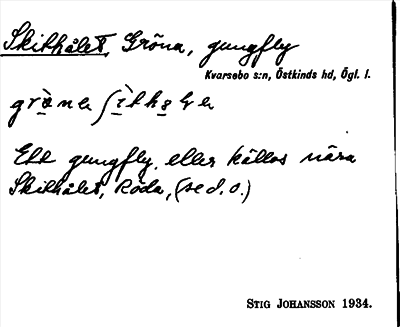 Skithålet, Gröna, gungfly
Kvarsebo s:n, Östkinds hd, Ögl. l.
Ett gungfly eller källos nära
Skithålet, Röda, (se d. o.)
STIG JOHANSSON 1934.